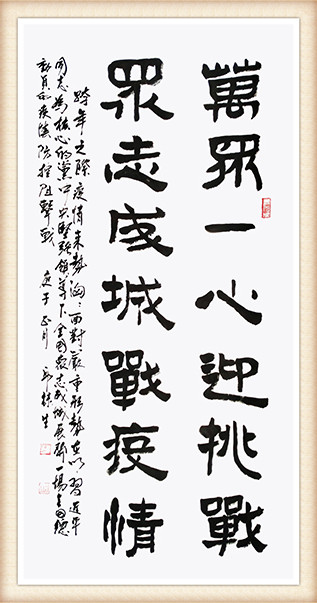 萬眾一心迎挑戰
眾志成城戰疫情
跨年之際疫情来勢洶洶面對嚴形勢在以習近平
同志為核心的黨中央堅強領導下全國眾志成城展開一場全国總
動員的疫防控阻擊戰 庚子正月